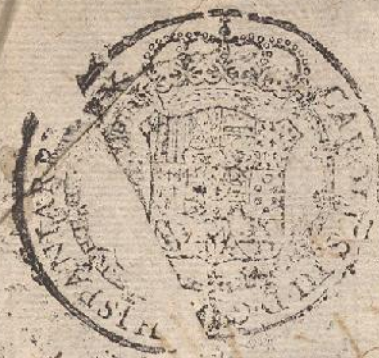 CAROLVS III D G
HISPANIAR R